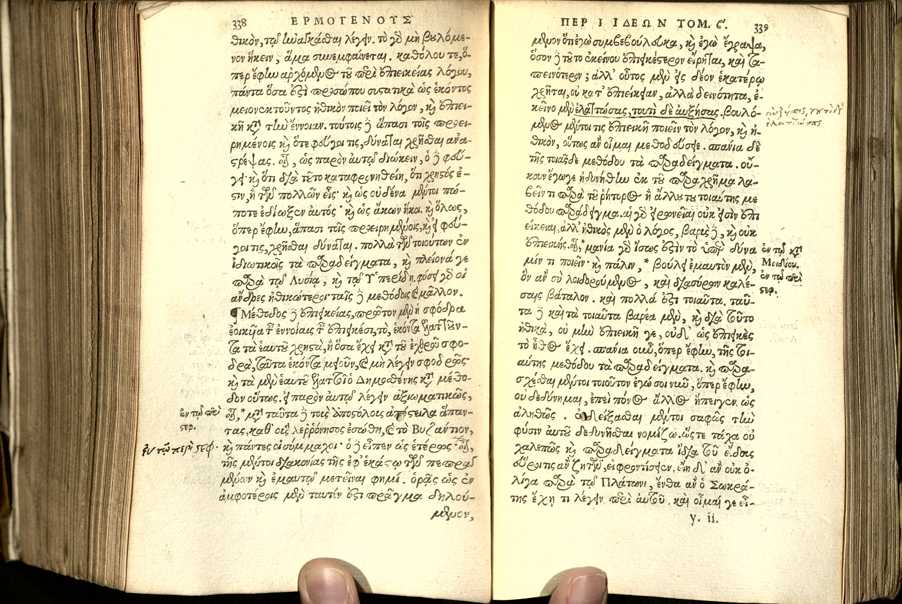 338 ΕΡΜΟΓΕΝΟΥΣ
θικὸν, τῷ λέγειν. τὸ γὰρ μὴ βουλόμε-
νον ἥκειν, ἅμα συνεμφαίνεται. καθόλου τε, ὅ-
περ ἔφην ἀρχόμενος τοῦ περὶ ἐπιεικείας λόγου,
πάντα ὅσα ἐπὶ προσώπου συστατικὰ ὡς ἑκόντος
μειονεκτοῦντος ἠθικὸν ποιεῖ τὸν λόγον, καὶ ἐπιει-
κῆ κατὰ τὴν ἔννοιαν. τούτοις δὲ ἅπασι τοῖς προει-
ρημένοις καὶ ὅτε φεύγοι τις, δύναται χρῆσθαι ἀνα-
στρέψας. οἷον, ὡς παρὸν αὐτῷ διώκειν, ὁ δὲ φεύ-
γει· καὶ ὅτι διὰ τοῦτο καταφρονηθείη, ὅτι χρηστός ἐ-
στιν, ἢ τῶν πολλῶν εἷς· καὶ ὡς οὐδένα μέντοι πώ-
ποτε ἐδίωξεν αὐτός· καὶ ὡς ἄκων ἥκει. καὶ ὅλως,
ὅπερ ἔφην, ἅπασι τοῖς προειρημένοις, καὶ εἰ φεύ-
γοι τις, χρῆσθαι δύναται. πολλὰ τῶν τοιούτων ἐν
ἰδιωτικοῖς τὰ παραδείγματα, καὶ πλείονά γε
παρὰ τῷ Λυσίᾳ, καὶ τῷ Ὑπερίδῃ. φύσει γὰρ οἱ
ἄνδρες ἠθικώτεροι ταῖς μεθόδοις μᾶλλον.
¶ Μέθοδος δὲ ἐπιεικείας, πρῶτον μὲν ἡ σφόδρα
ἐοικυῖα ταῖς ἐννοίαις ταῖς ἐπιεικέσι, τὸ, ἑκόντα ἐλαττοῦν-
τα τὰ ἑαυτοῦ χρηστὰ, ἢ ὅσα ἔχει κατὰ τοῦ ἐχθροῦ σφο-
δρὰ, ταῦτα ἑκόντα μειοῦν, καὶ μὴ λέγειν σφοδρῶς·
καὶ τὰ μὲν ἑαυτοῦ ἐλαττοῖ ὁ Δημοσθένης κατὰ μέθο-
δον οὕτως. εἰ παρὸν αὐτῷ λέγειν ἀξιωματικῶς,
οἷον, *μετὰ ταῦτα δὲ τοὺς ἀποστόλους ἀπέστειλα ἅπαν-
τας, καθ' οὓς Χερρόνησος ἐσώθη, καὶ τὸ Βυζάντιον,
καὶ πάντες οἱ σύμμαχοι· ὁ δὲ εἶπεν ὡς ἑτέρως· οἷον,
τῆς μέντοι διακονίας τῆς ἐφ' ἑκάστῳ τῶν πεπραγ-
μένων καὶ ἐμαυτῷ μετεῖναι φημί. ὁρᾷς ὡς ἐν
ἀμφοτέροις μὲν ταυτόν ἐστι πρᾶγμα δηλού-
μενον,
ἐν τῷ περὶ
στεφ.
ἐν τῷ περὶ στεφ.
ΠΕΡΙ ΙΔΕΩΝ ΤΟΜ. ϛ. 339
μενον ὅτι ἐγὼ συμβεβούλευκα, καὶ ἐγὼ ἔγραψα,
ὅσον δὲ τοῦτο ἐκείνου ἐπιεικέστερον εἴρηται, καὶ τα-
πεινότερον; ἀλλ' οὗτος μὲν εἰς δέον ἑκατέρῳ
χρῆται, οὐ κατ' ἐπιείκειαν, ἀλλὰ δεινότητα, ἐ-
κεῖνο μὲν ἐλαττώσας, τουτὶ δὲ αὐξήσας. βουλό-
μενος μέντοι τις ἐπιεικῆ ποιεῖν τὸν λόγον, καὶ ἠ-
θικὸν, οὕτως ἂν οἶμαι μεθοδεύσειε. σπάνια δὲ
τῆς τοιᾶσδε μεθόδου τὰ παραδείγματα. οὔ-
κουν ἔγωγε ἠδυνήθην ἐκ τοῦ παραχρῆμα λα-
βεῖν τι παρὰ τοῦ ῥήτορος ἢ ἄλλου τοιαύτης με-
θόδου παράδειγμα. αἱ γὰρ εἰρωνεῖαι οὐκ εἰσὶν ἐπι-
είκειαι. ἀλλ' ἠθικὸς μὲν ὁ λόγος, βαρὺς δὲ, καὶ οὐκ
ἐπιεικής. οἷον,*μανία γὰρ ἴσως ἐστὶν τὸ ὑπὲρ δύνα
μίν τι ποιεῖν· καὶ πάλιν, *βούλει ἐμαυτὸν μὲν,
ὃν ἂν σὺ λοιδορούμενος, καὶ διασύρων καλέ-
σαις βάταλον. καὶ πολλά ἐστι τοιαῦτα. ταῦ-
τα δὲ καὶ τὰ τοιαῦτα βαρέα μὲν, καὶ διὰ τοῦτο
ἠθικά, οὐ μὴν ἐπιεικῆ γε, οὐδ' ὡς ἐπιεικὲς
τὸ ἦθος ἔχει. σπάνια οὖν, ὅπερ ἔφην, τῆς τοι-
αύτης μεθόδου τὰ παραδείγματα. καὶ παρα-
σχέσθαι μέντοι τοιοῦτον ἐγὼ σοι νῦν, ὅπερ ἔφην,
οὐ δεδύνημαι, ἐπεὶ πόνος ἄλλος ἤπειγεν ὡς
ἀληθῶς. ἐνδείξασθαι μέντοι σαφῶς τὴν
φύσιν αὐτοῦ δεδυνῆσθαι νομίζω. ὥστε τάχα οὐ
χαλεπῶς καὶ παραδείγματα διὰ τοῦ εἴδους
εὕροι τις ἂν ζητῶν, εἰ φροντίσειεν. εἴη δ' ἂν οὐκ ὀ-
λίγα παρὰ τῷ Πλάτωνι, ἔνθα ἂν ὁ Σωκρά-
της ἔχῃ τι λέγειν περὶ αὑτοῦ. καὶ οἶμαί γε εἴ-
y. ii.
ἐν τῷ κατὰ
Μειδίου.
ἐν τῷ περὶ
στεφ.